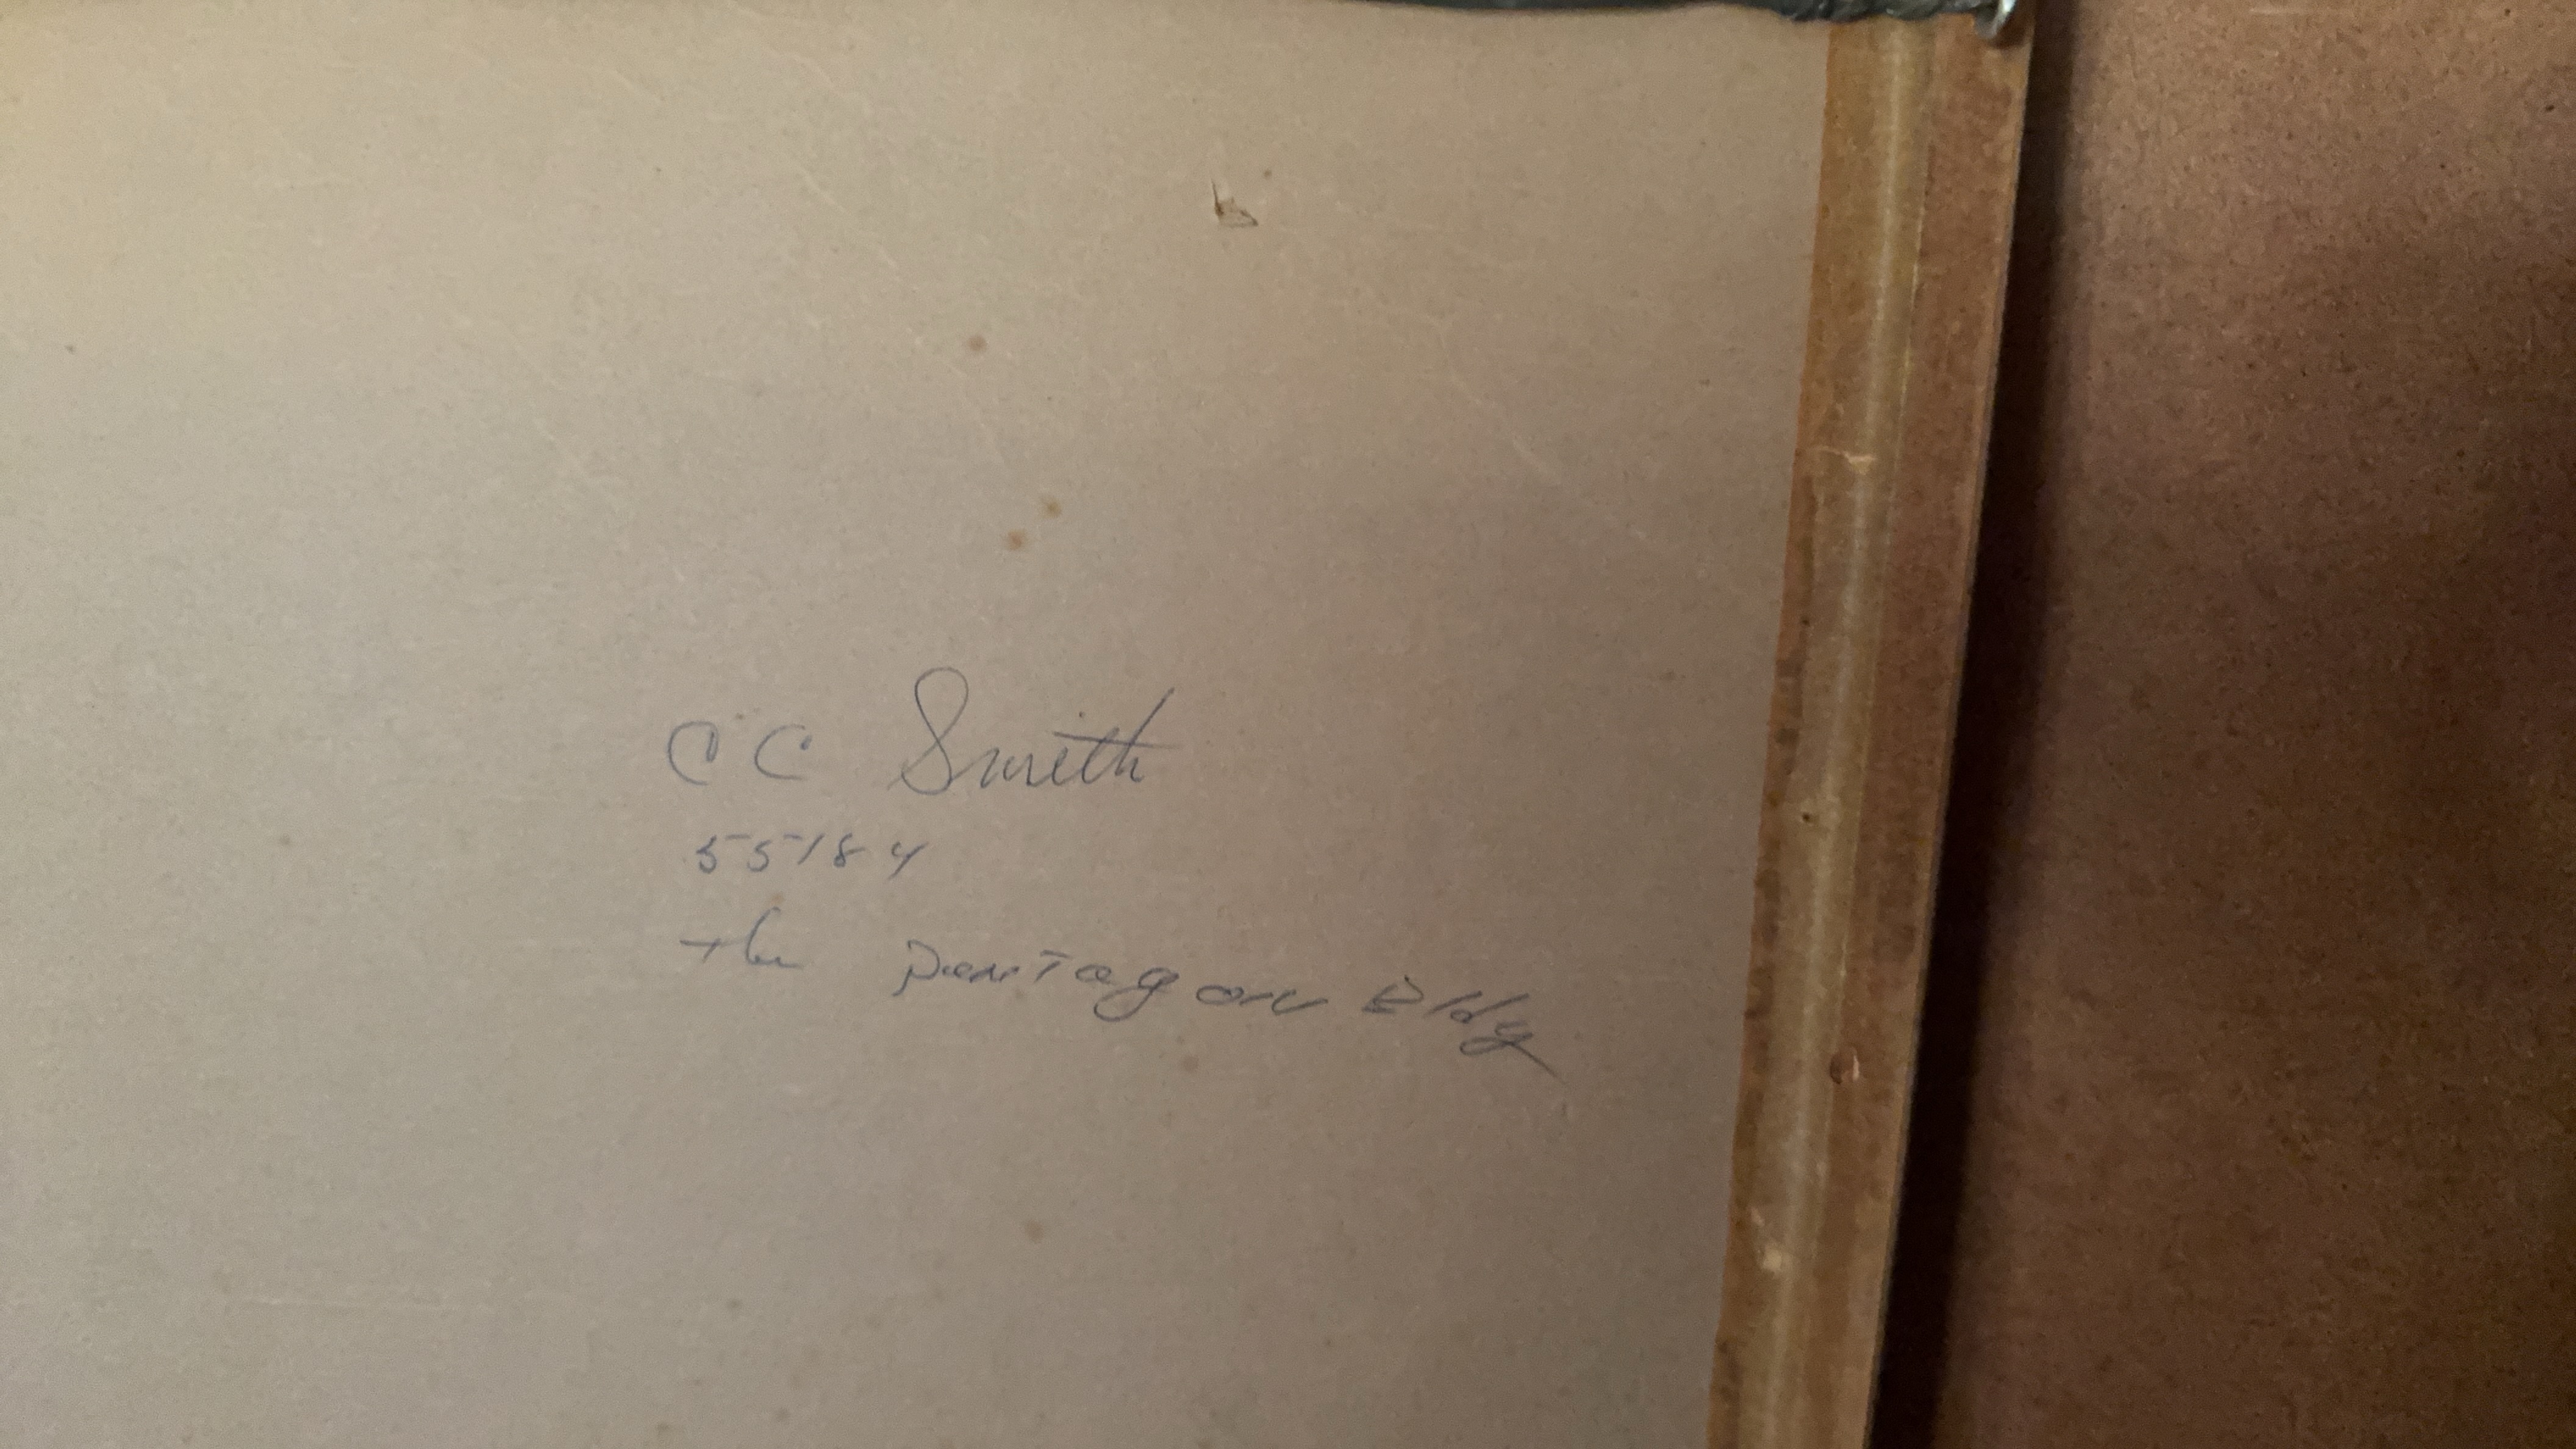 CC Smith
55184
the pentagon Bldg